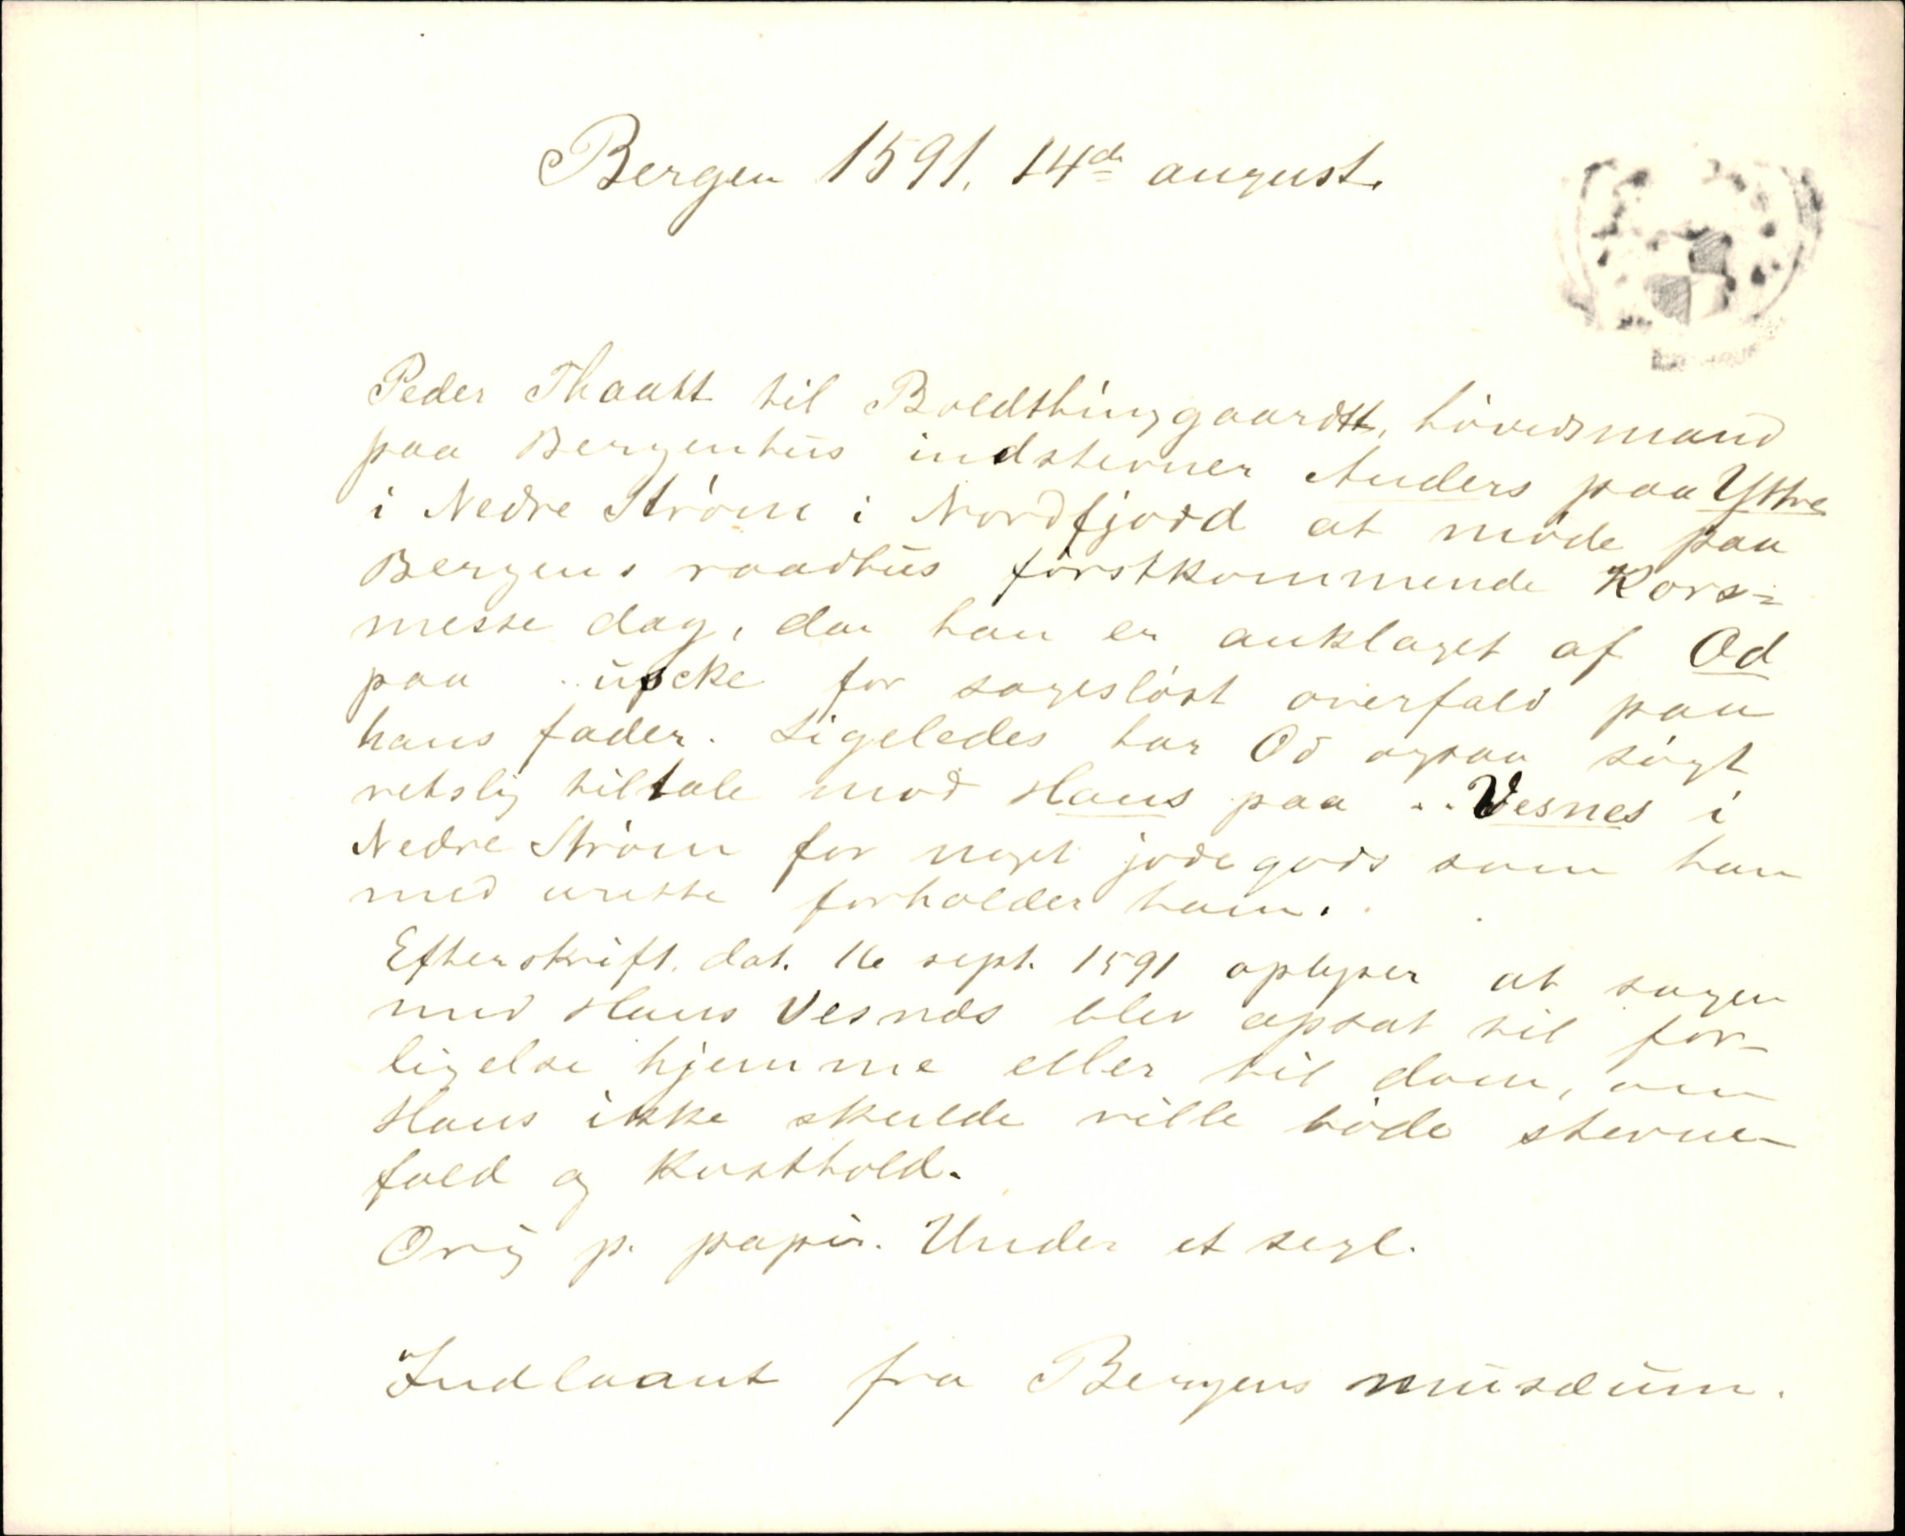 Bergen 1591, 14de august.
Peder Thaatt til Boldthinggaardtt, hövedsmand
paa Bergenhus indstevner Anders paa Yttre
i Nedre Ström i Nordfjord at møde paa
Bergens raadhus förstkommende Kors-
messe dag, da han er anklaget af Od
paa ..upcke for sageslöst overfald paa
hans fader. Ligeledes har Od ogsaa sögt
retslig tiltale mod Hans paa .. Vesnes i
Nedre Ström for noget jordegods som han
med urette forholder ham.
Efterskrift dat. 16 sept. 1591 oplyser at sagen
med Hans Vesnes blev opsat til for-
ligelse hjemme eller til dom, om
Hans ikke skulde ville böde stevne-
fald og kosthold.
Orig p. papir. Under et segl.
Indlaant fra Bergens musæum.